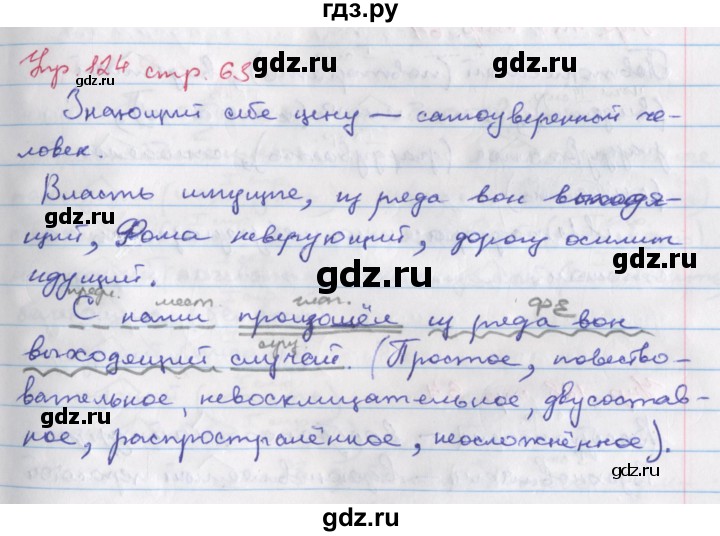 гдз.ру
Упр 124 стр. 63
gdz.ru
gdz.ru
Знающий себе цену — самоуверенной че-
gdz.ru
ловек.
gdz.ru
Власть имущие, из ряда вон выходя-
gdz.ru
щий, Фома неверующий, дорогу осилит
gdz.ru
gdz.ru
идущий.
предл. мест. глаг. ФЕ
С нами произошёл из ряда вон
сущ.
выходящий случай. (Простое, повество-
gdz.ru
gdz.ru
вательное, невосклицательное, двусостав-
ное, распространённое, неосложнённое).
gdz.ru
gdz.ru
gdz.ru